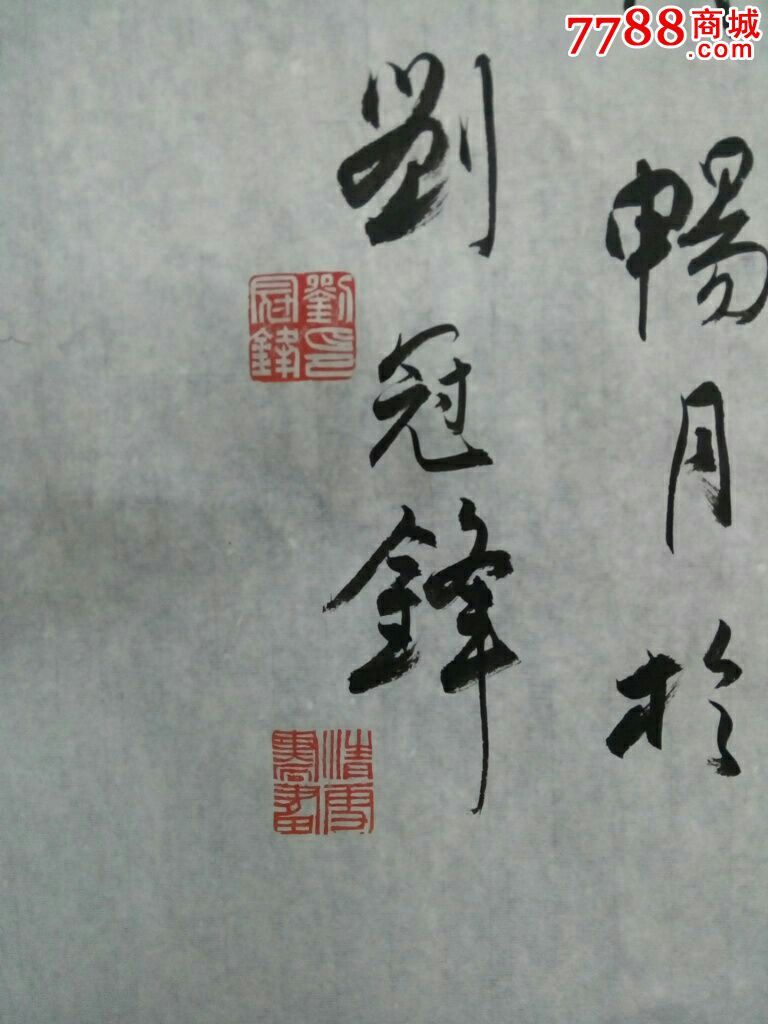 7788商城
.com
暢月於
劉冠鋒
劉印冠鋒